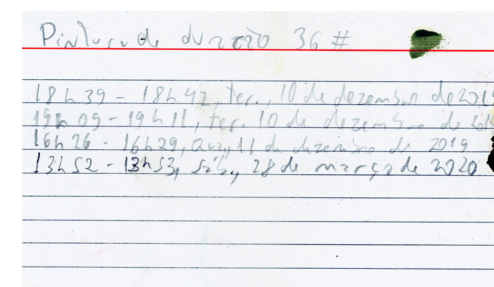 Pintura de duração 36 #
18h39 - 18h42, ter., 10 de dezembro de 2019
19h09 - 19h11, ter. 10 de dezembro de 2019
16h26 - 16h29, qua, 11 de dezembro de 2019
13h52 - 13h53, sáb, 28 de março de 2020